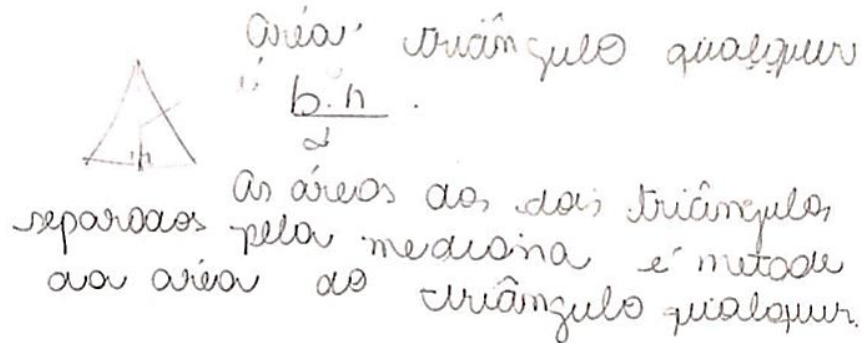 área triângulo qualquer
é b.h
2
h
As áreas dos dois triângulos
separados pela mediana é metade
da área do triângulo qualquer.